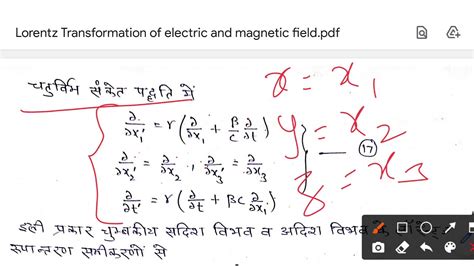 Lorentz Transformation of electric and magnetic field.pdf
चतुर्विम संकेत पद्धति में
x = x₁
∂/∂x₁' = γ(∂/∂x₁ + β/c ∂/∂t)
y = x₂
∂/∂x₂' = ∂/∂x₂ , ∂/∂x₃' = ∂/∂x₃ — (17)
z = x₃
∂/∂t' = γ(∂/∂t + βc ∂/∂x₁)
इसी प्रकार चुम्बकीय सदिश विभव व अदिश विभव के
रूपान्तरण समीकरणों से